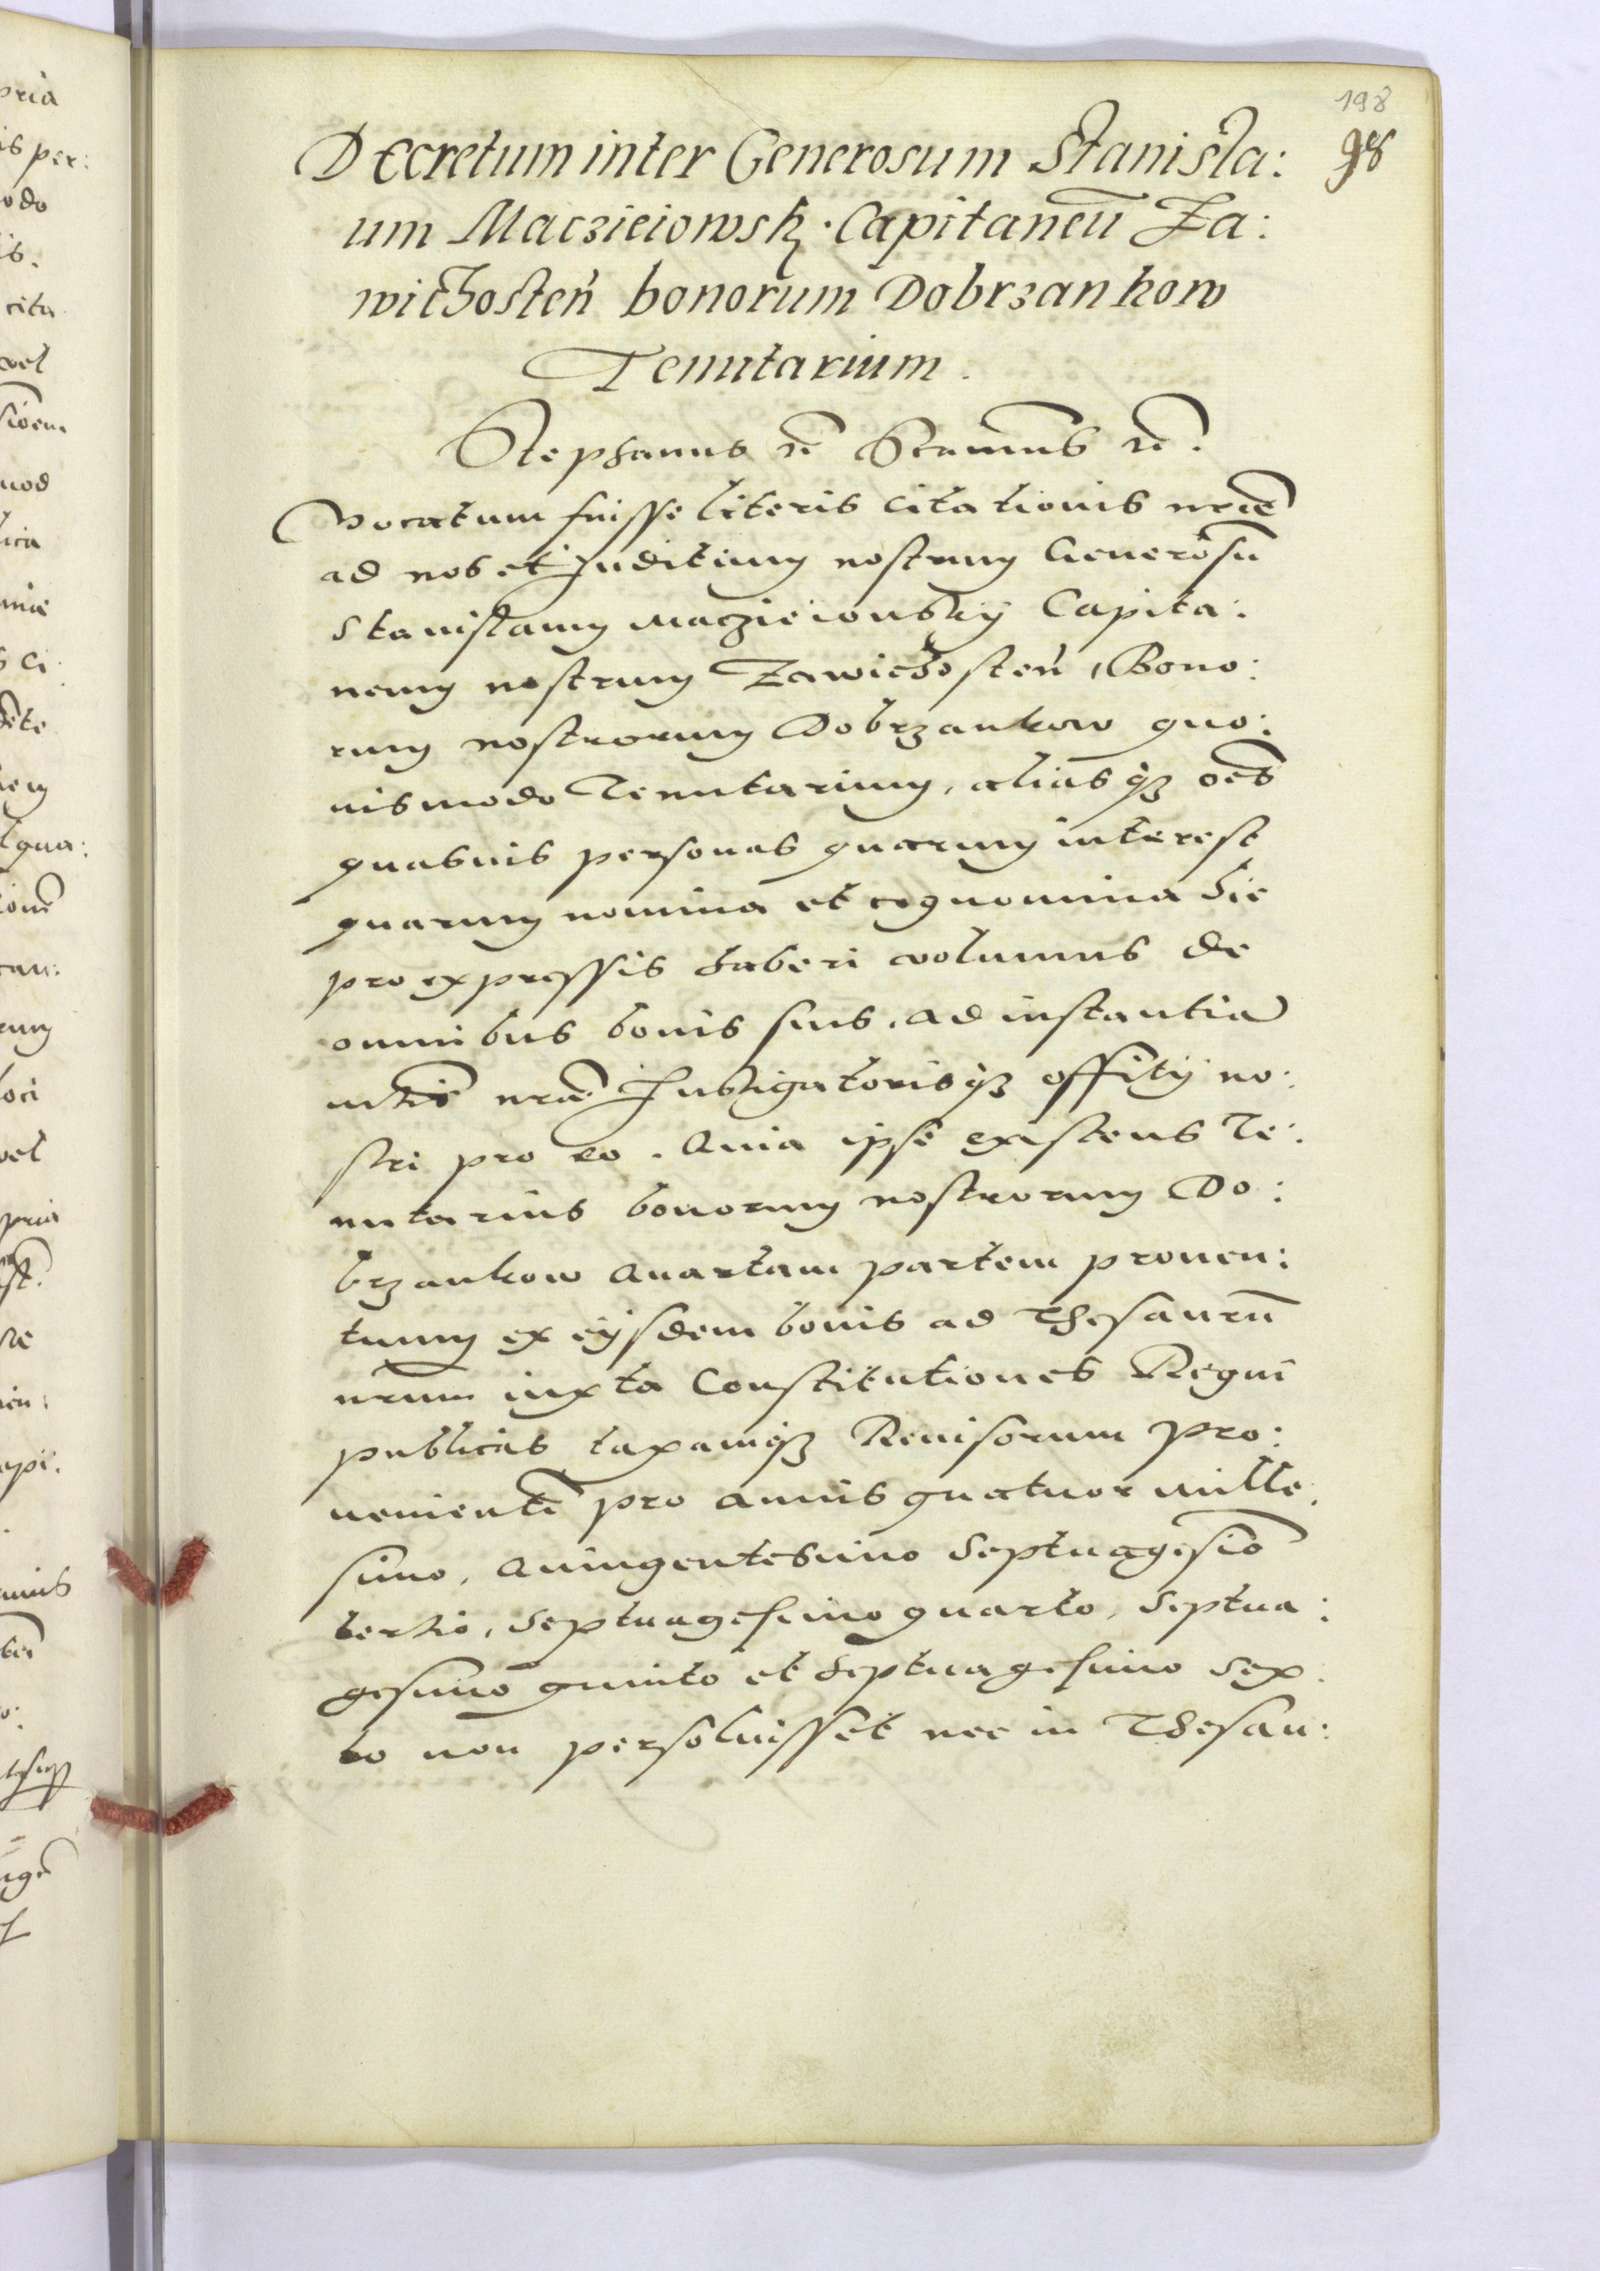 198
98
Decretum inter Generosum Stanisla:
um Maczieiowsk Capitaneū Za:
withosteń bonorum Dobrzankow
Tenutarium.
Stephanus rē
Vocatum fuisse literis citationis nrāe
ad nos et Juditium nostrum Generosū
Stanislaum Maczieiowskÿ Capita:
neum nostrum Zawichosteń, Bono:
rum nostrorum Dobrzankow quo:
uis modo Tenutarium, alias q3 oēs
quasuis personas quarum interest
quarum nomina et cognomina hic
pro expressis haberi volumus de
omnibus bonis suis. ad instantiā
nrāe Instigatoris q3 offitÿ no:
stri pro eo. Quia ipse existens Te:
nutarius bonorum nostrorum Do:
brzankow Quartam partem prouen:
tuum ex eÿsdem bonis ad Thesaurū
nrum iuxta Constitutiones Regni
publicas taxam q3 Reuisorum pro:
uenientē pro annis quatuor mille
simo, Quingentesimo Septuagesīo
tertio, Septuagesimo quarto, Septua:
gesimo quinto et Septuagesimo sex
to non persoluisset nec in Thesau: